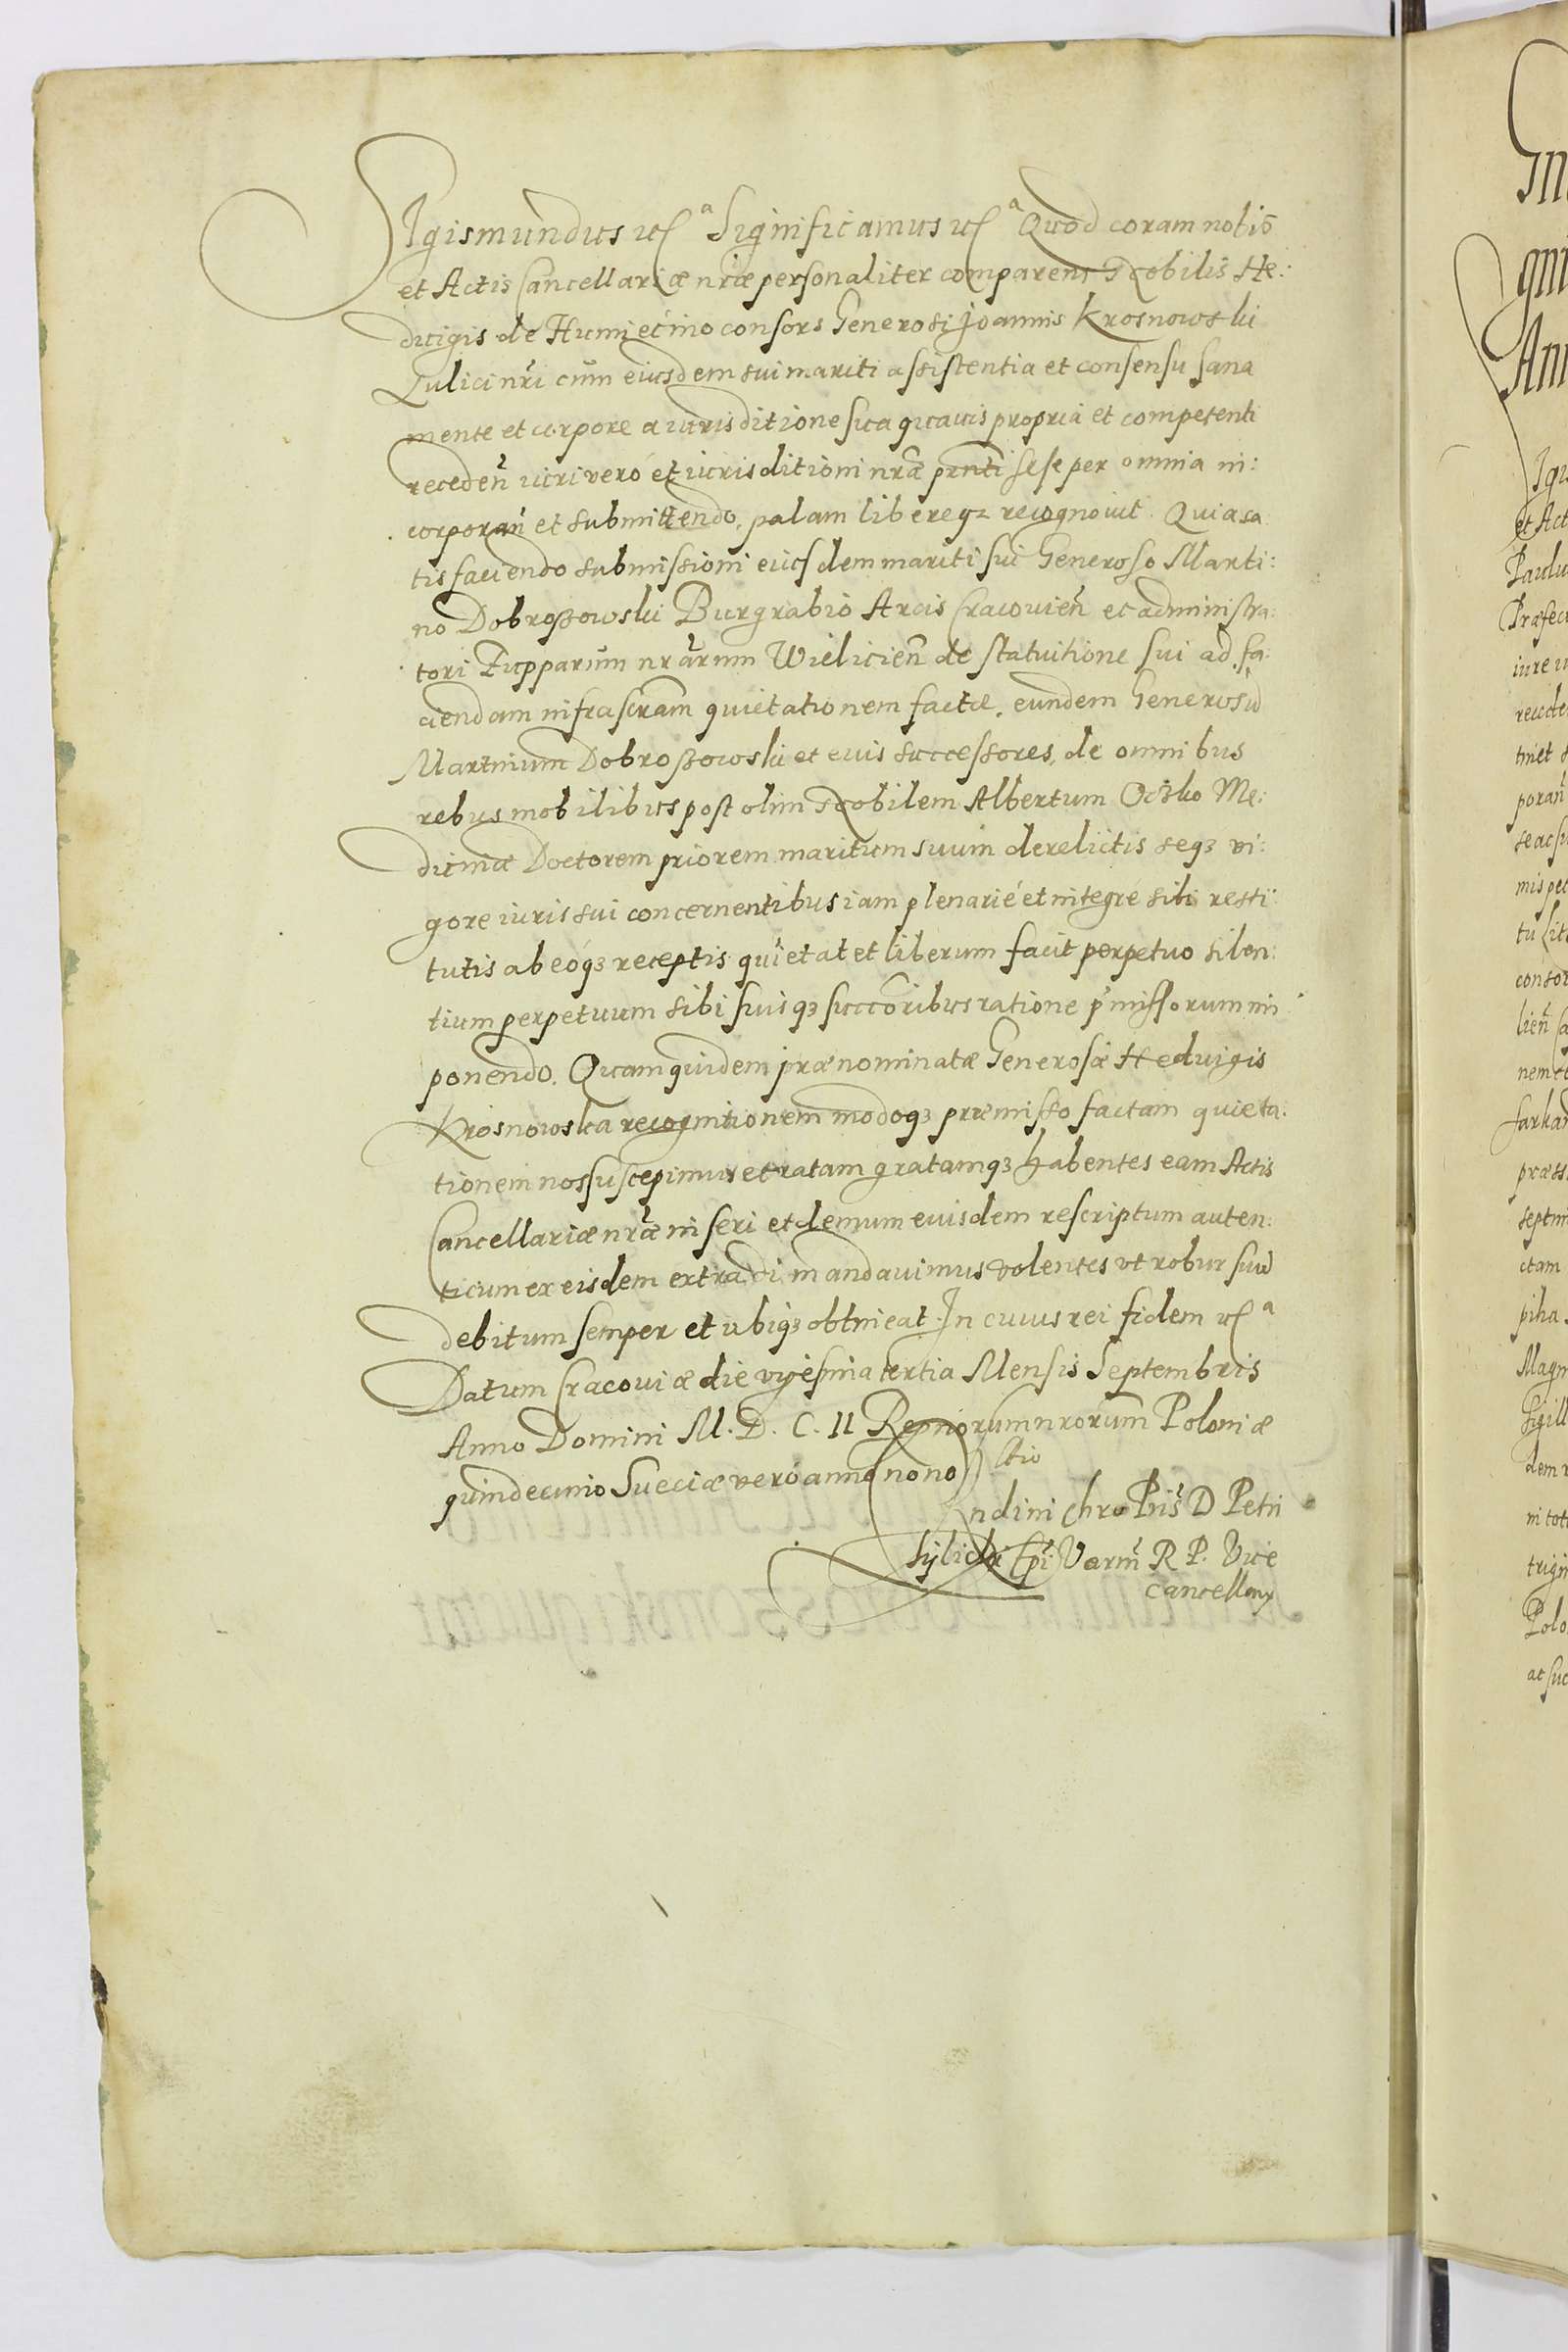 Sigismundus etc a Significamus etc a Quod coram nobis
et Actis Cancellariæ nræ personaliter comparens Nobilis He:
duigis de Humięcino consors Generosi Joannis Krosnowski
Aulici nri cum eiusdem sui mariti assistentia et consensu sana
mente et corpore a iurisditione sua quauis propria et competenti
receden̄ uti vero et iurisditioni nræ pnti sese per omnia in:
corporan̄ et submittendo, palam libereqz recognouit. Quia sa
tisfaciendo submissioni eiusdem mariti sui Generoso Marti:
no Dobroszowski Burgrabio Arcis Cracouien̄ et administra:
tori Zupparum nrarum Wielicien̄ de statuitione sui ad fa:
ciendam infrascram quietationem factæ, eundem Generosū
Martinum Dobroszowski et euis successores, de omnibus
rebus mobilibus post olim Nobilem Albertum Oczko Me:
dicinæ Doctorem priorem maritum suum derelictis seqz vi:
gore iuris sui concernentibus iam plenarié et integré sibi resti:
tutis ab eóqz receptis quietat et liberum facit perpetuo silen:
tium perpetuum sibi suisqz succoribus ratione pmissorum im
ponendo. Quam quidem prænominatæ Generosæ Heduigis
Krosnowska recognitionem modoqz præmisso factam quieta:
tionem nos suscepimus et ratam gratamqz habentes eam Actis
Cancellariæ nræ inseri et demum euisdem rescriptum auten:
ticum ex eisdem extradi mandauimus volentes vt robur suū
debitum semper et ubiqz obtineat. In cuius rei fidem etc a
Datum Cracouiæ die vigesima tertia Mensis Septembris
Anno Domini M. D. C. II Regnorum nrorum Poloniæ
quindecimo Sueciæ veró anno nono) ltio
ndini Chro Pris D Petri
Tylicki Epi Varm R P. Vice
cancellary